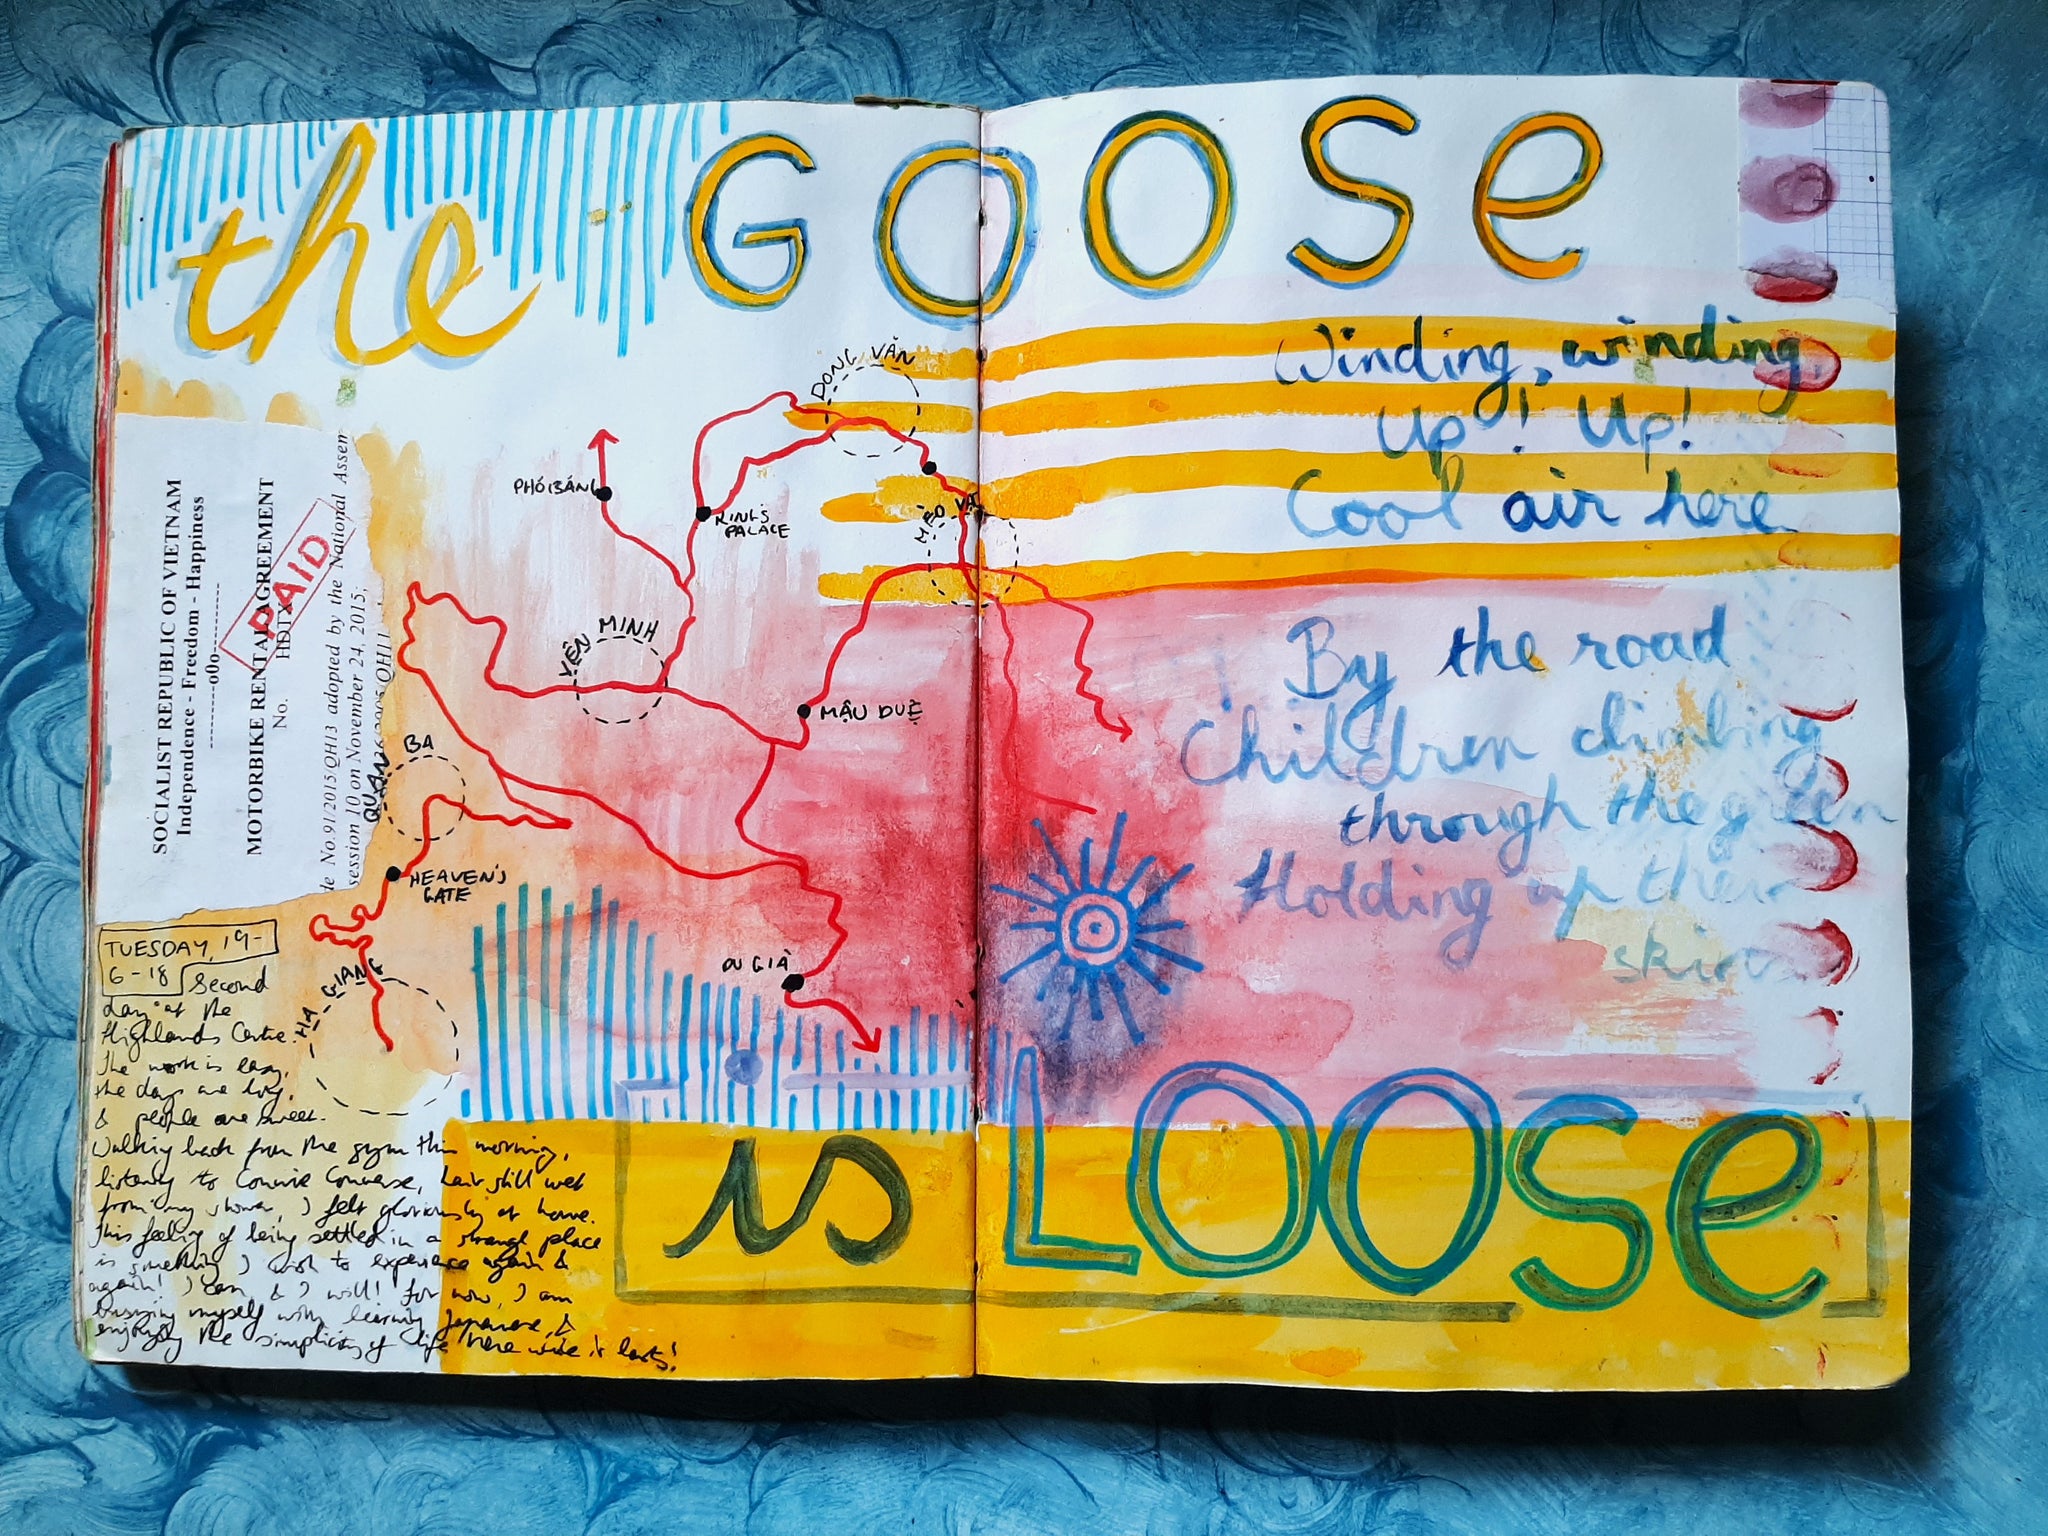 the GOOSE
SOCIALIST REPUBLIC OF VIETNAM
Independence - Freedom - Happiness
----------oOo----------
MOTORBIKE RENTAL AGREEMENT
No. HDTX
PAID
de No.91/2015/QH13 adopted by the National Assem
session 10 on November 24, 2015,
DONG VĂN
PHÓ BẢNG
KING'S
PALACE
MÈO VẠC
YÊN MINH
MẬU DUỆ
QUẢN BA
HEAVEN'S
GATE
DU GIÀ
HA GIANG
Winding, winding,
Up! Up!
Cool air here
By the road
Children climbing
through the green
Holding up their
skirts
TUESDAY, 19-
6-18 Second
day at the
Highlands Centre.
The work is easy,
the days are long,
& people are sweet.
Walking back from the gym this morning,
listening to Connie Converse, hair still wet
from my shower, I felt gloriously at home.
This feeling of being settled in a strange place
is something I wish to experience again &
again! I can, & I will! For now, I am
busying myself with learning Japanese, &
enjoying the simplicity of life here while it lasts!
is LOOSE